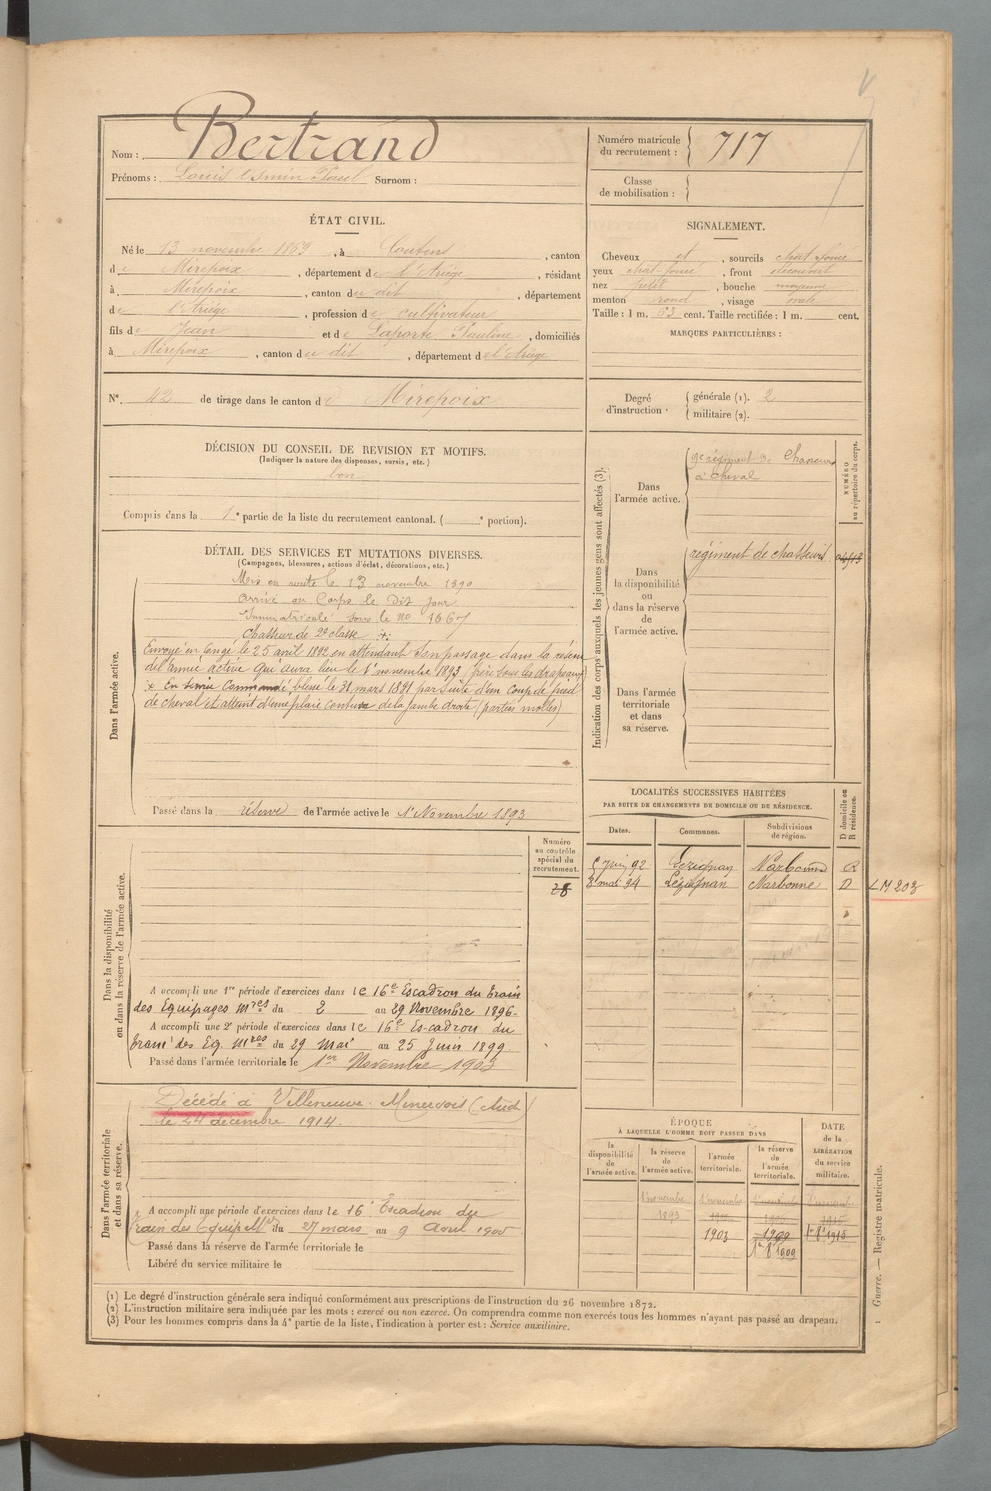 Nom : Bertrand
Prénoms : Louis Paul Surnom :
Numéro matricule du recrutement : 717
Classe de mobilisation :
ÉTAT CIVIL.
Né le 13 novembre 1869, à Coutens, canton
de Mirepoix, département de l'Ariège, résidant
à Mirepoix, canton du dit, département
de l'Ariège, profession de cultivateur
fils de Jean et de Laporte Pauline, domiciliés
à Mirepoix, canton du dit, département de l'Ariège
SIGNALEMENT.
Cheveux et, sourcils chat. foncé
yeux chat. foncé, front découvert
nez petit, bouche moyenne
menton rond, visage ovale
Taille : 1 m. 63 cent. Taille rectifiée : 1 m. cent.
MARQUES PARTICULIÈRES :
N°. 42 de tirage dans le canton d Mirepoix
Degré d'instruction.
générale (1). 2
militaire (2).
DÉCISION DU CONSEIL DE REVISION ET MOTIFS.
(Indiquer la nature des dispenses, sursis, etc.)
bon
Compris dans la 1e partie de la liste du recrutement cantonal. ( e portion).
DÉTAIL DES SERVICES ET MUTATIONS DIVERSES.
(Campagnes, blessures, actions d'éclat, décorations, etc.)
Dans l'armée active.
Mis en route le 13 novembre 1890
Arrivé au Corps le dit jour
Immatriculé sous le no 1667
Chasseur de 2e classe
Envoyé en congé le 25 avril 1892 en attendant son passage dans la réserve
de l'armée active qui aura lieu le 1r novembre 1893 sous les drapeaux
x En service Commandé blessé le 31 mars 1891 par suite d'un coup de pied
de cheval et atteint d'une plaie contuse de la jambe droite (parties molles)
Passé dans la réserve de l'armée active le 1r Novembre 1893
Indication des corps auxquels les jeunes gens sont affectés (3).
NUMÉRO au répertoire du corps.
Dans l'armée active.
9e régiment de Chasseurs
à cheval
Dans la disponibilité ou dans la réserve de l'armée active.
régiment de chasseurs
Dans l'armée territoriale et dans sa réserve.
LOCALITÉS SUCCESSIVES HABITÉES
PAR SUITE DE CHANGEMENTS DE DOMICILE OU DE RÉSIDENCE.
Dates. Communes. Subdivisions de région. D domicile ou R résidence.
5 juin 92 Lezignan Narbonne R
8 mai 94 Lézignan Narbonne D LM 203
Dans la disponibilité ou dans la réserve de l'armée active.
Numéro au contrôle spécial du recrutement.
28
A accompli une 1re période d'exercices dans le 16e Escadron du train
des Equipages mres du 2 au 29 Novembre 1896.
A accompli une 2e période d'exercices dans le 16e Escadron du
train des Eq. mres du 29 Mai au 25 Juin 1899.
Passé dans l'armée territoriale le 1er Novembre 1903
Dans l'armée territoriale et dans sa réserve.
Décédé à Villeneuve-Minervois (Aude)
le 24 décembre 1914.
A accompli une période d'exercices dans le 16e Escadron du
train des Equip. Mres du 27 mars au 9 Avril 1905
Passé dans la réserve de l'armée territoriale le
Libéré du service militaire le
ÉPOQUE
À LAQUELLE L'HOMME DOIT PASSER DANS
la disponibilité de l'armée active.
la réserve de l'armée active.
l'armée territoriale.
la réserve de l'armée territoriale.
DATE de la LIBÉRATION du service militaire.
1r novembre 1r novembre 1r novembre 1r novembre
1893
1903 1909 1r 8e 1915
1r 8e 1909
Guerre. — Registre matricule.
(1) Le degré d'instruction générale sera indiqué conformément aux prescriptions de l'instruction du 26 novembre 1872.
(2) L'instruction militaire sera indiquée par les mots : exercé ou non exercé. On comprendra comme non exercés tous les hommes n'ayant pas passé au drapeau.
(3) Pour les hommes compris dans la 4e partie de la liste, l'indication à porter est : Service auxiliaire.